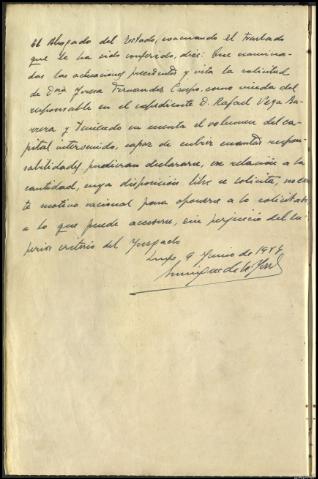 El Abogado del Estado, evacuando el traslado
que le ha sido conferido, dice: Que examina-
das las actuaciones precedentes y vista la solicitud
de Dña Fernandez Crespo, como viuda del
responsable en el expediente D. Rafael Vega Ba-
rrera y teniendo en cuenta el volumen del ca-
pital intervenido, capaz de cubrir cuantas respon-
sabilidades pudieran declararse, en relación a la
cantidad, cuya disposición libre se solicita, no exis-
te motivo racional para oponerse a lo solicitado
a lo que puede accederse, sin perjuicio del su-
perior criterio del Juzgado
Lugo, 9 Junio de